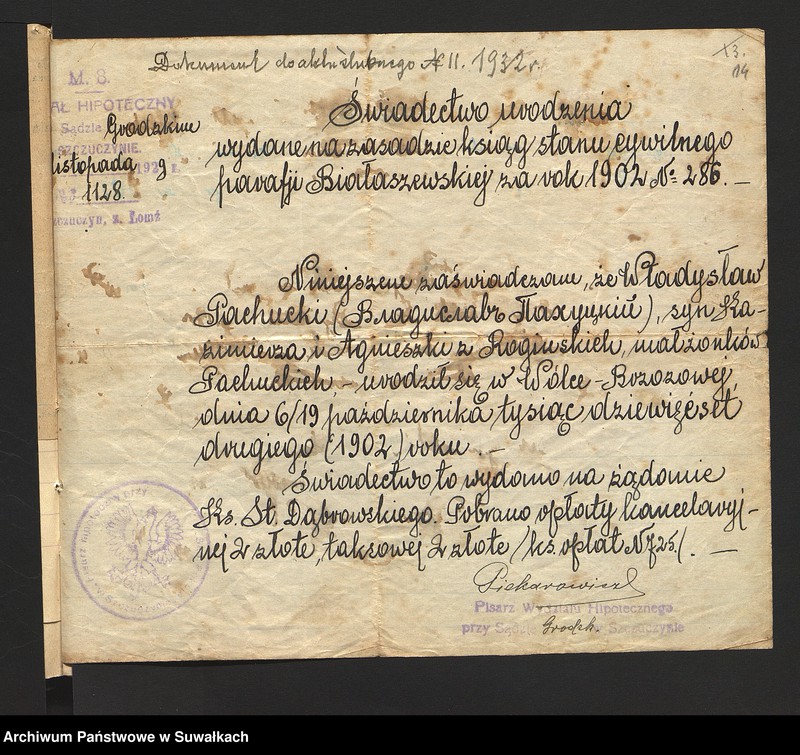 Dokument do aktu ślubnego № 11. 1932 r.
13.
14
M. S.
AŁ HIPOTECZNY
Sądzie Grodzkim
SZCZUCZYNIE.
listopada 1929 r.
1128.
Szczuczyn, z. Łomż
Świadectwo urodzenia
wydane na zasadzie ksiąg stanu cywilnego
parafji Białaszewskiej za rok 1902 № 286. —
Niniejszem zaświadczam, że Władysław
Pachucki (Владиславъ Пахуцкий), syn Ka-
zimierza i Agnieszki z Rogińskich, małżonków
Pachuckich, - urodził się w Wólce-Brzozowej,
dnia 6/19 października tysiąc dziewięćset
drugiego (1902) roku. —
Świadectwo to wydano na żądanie
Ks. St. Dąbrowskiego. Pobrano opłaty kancelaryj-
nej 2 złote, taksowej 2 złote /ks. opłat № 725/. —
Piekarowicz
Pisarz Wydziału Hipotecznego
przy Sądzie Grodzk. w Szczuczynie
Archiwum Państwowe w Suwałkach